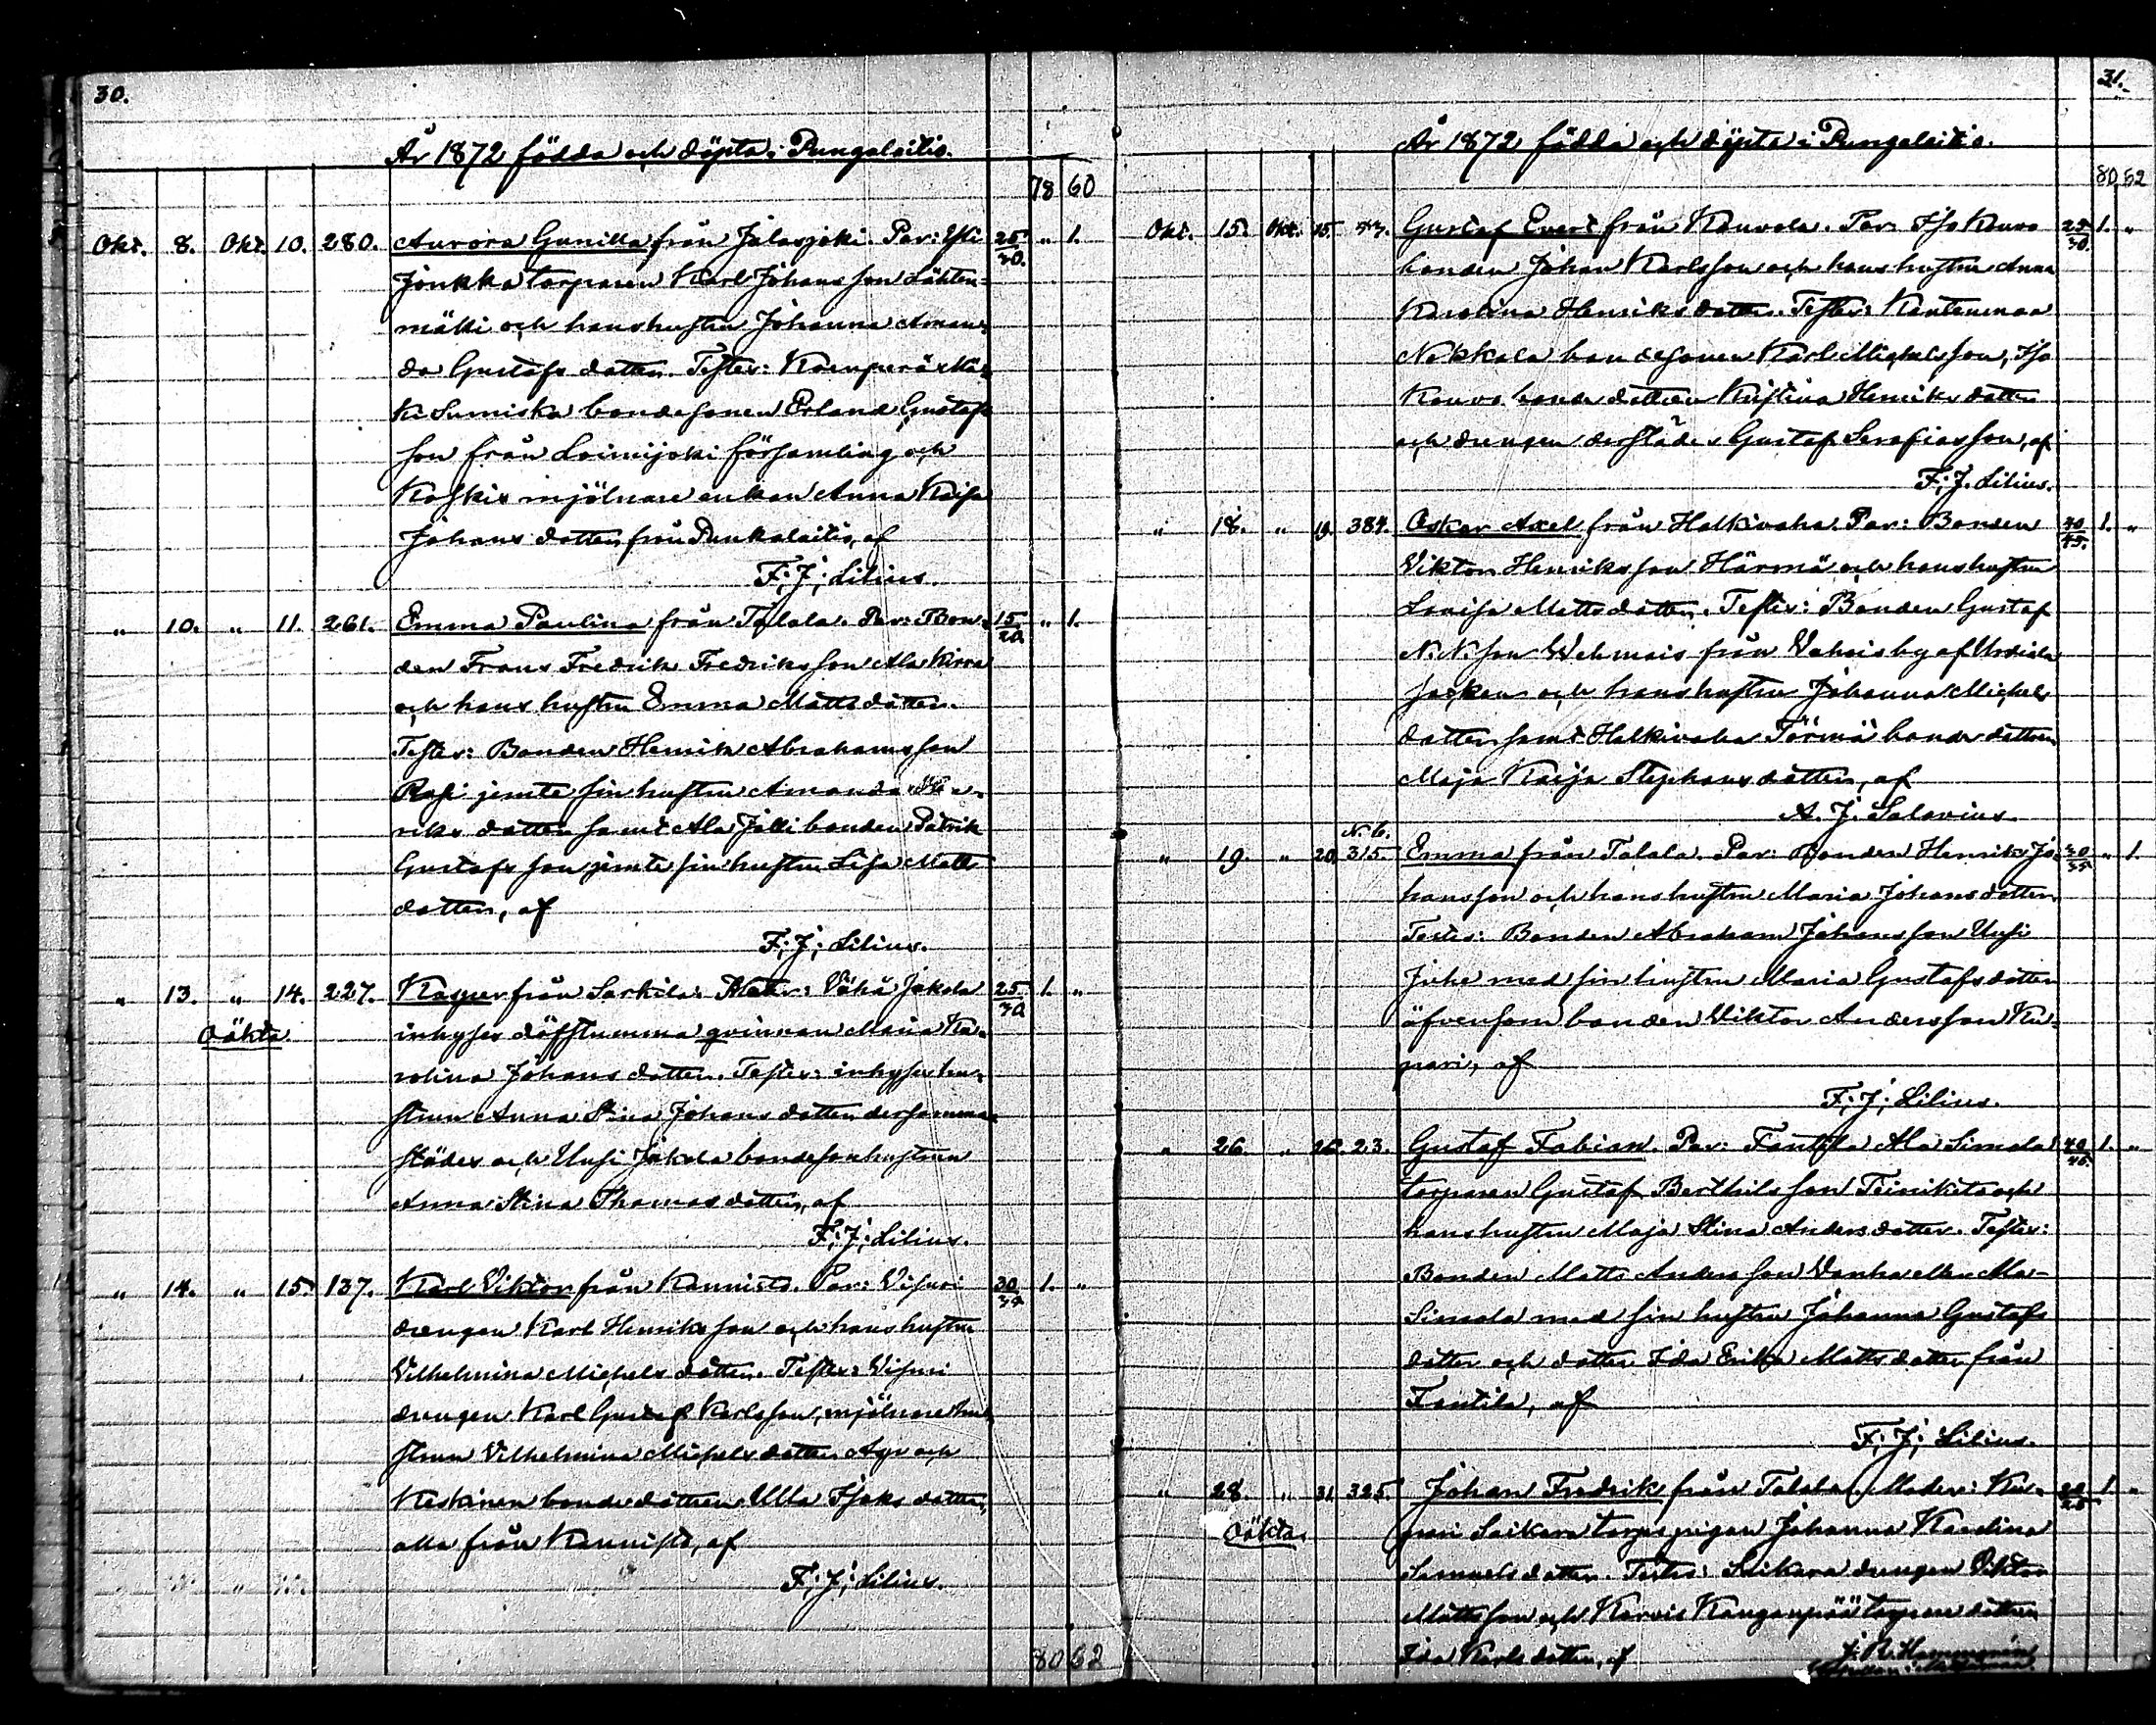 30.
År 1872 födda och döpta i Pungalaitio.
78 60
Okt. 8. Okt. 10. 280. Aurora Gunilla från Jalasjoki. Par: Ylli 25/30. " 1.
Jonkka torparen Karl Johansson Lähten-
mäki och hans hustru Johanna Aman-
da Gustafsdotter. Testes:
Suniska bondesonen Erland Gustafs
son från Loimijoki församling och
Koskis mjölnare enkan Anna Kaisa
Johansdotter från Punkalaitio, af
F; J; Lilius.
" 10. " 11. 261. Emma Paulina från Talala. Par: Bon- 15/20 " 1.
den Frans Fredrik Fredriksson Ala Kirra
och hans hustru Emma Mattsdotter.
Testes: Bonden Henrik Abrahamsson
Rasi jemte sin hustru Amanda Hen-
riksdotter samt Ala Jälli bonden Patrik
Gustafsson jemte sin hustru Lisa Matts
dotter, af
F; J; Lilius.
" 13. " 14. 227. Kasper från Sarkila. Mater: Vähä Jakola 25/30 1. "
oäkta inhyses döfstumma qvinnan Maria Ka-
rolina Johansdotter. Testes: inhyses hu-
strun Anna Stina Johansdotter dersamma-
städes och Uusi Jakola bondesonhustrun
Anna Stina Thomasdotter, af
F; J; Lilius.
" 14. " 15. 137. Karl Viktor från Kannisto. Par: Visuri 30/35 1. "
drengen Karl Henriksson och hans hustru
Vilhelmina Michelsdotter. Testes: Visuri
drengen Karl Gustaf Karlsson, mjölnare hu-
strun Vilhelmina Michelsdotter och
Keskinen bondedottren Ulla Isaksdotter,
alla från Kannisto, af
F; J; Lilius.
80 62
31.
År 1872 födda och döpta i Pungalaitio.
80 62
Okt. 15. Okt. 15. Gustaf Evert från Kauvola. Par: Iso Kouvo 25/30. 1. "
bonden Johan Karlsson och hans hustru Anna
Karolina Henriksdotter. Testes: Kanteenmaa
Nokkala bondesonen Karl Michelsson, Iso
Kouvo bondedottren Kristina Henriksdotter
och drengen derstädes Gustaf Serafiasson, af
F; J. Lilius.
" 18. " 19. 384. Oskar Axel från Halkivaha. Par: Bonden 40/45. 1. "
Viktor Henriksson Härmä och hans hustru
Lovisa Mattsdotter. Testes: Bonden Gustaf
N. N. son Wehmais från Vahois by af Urdiala
socken och hans hustru Johanna Michels
dotter samt Halkivaha Törmä bondedottren
Maja Kaisa Stephansdotter, af
A. J. Salovius.
N. 6.
" 19. " 20. 315. Emma från Talala. Par: Bonden Henrik Jo- 30/35 " 1.
hansson och hans hustru Maria Johansdotter.
Testes: Bonden Abraham Johansson Uusi
Juhe med sin hustru Maria Gustafsdotter
äfvensom bonden Viktor Andersson Ku-
pari, af
F; J; Lilius.
" 26. " 26. 23. Gustaf Fabian. Par: Fantila Ala Simola 40/45. 1. "
torparen Gustaf Berthilsson Teinikets och
hans hustru Maja Stina Andersdotter. Testes:
Bonden Matts Andersson Vanha Ala-
Simola med sin hustru Johanna Gustafs
dotter och dotter Ida Erika Mattsdotter från
Fantila, af
F; J; Lilius.
" 28. " 31. 325. Johan Fredrik från Talala. Moder: Ku- 20/25 1. "
oäkta. pari Saikara torps pigan Johanna Karolina
Samuelsdotter. Testes: Saikara drengen Viktor
Mattsson och Karvis Kanganpää torpare dottren
Ida Karlsdotter, af